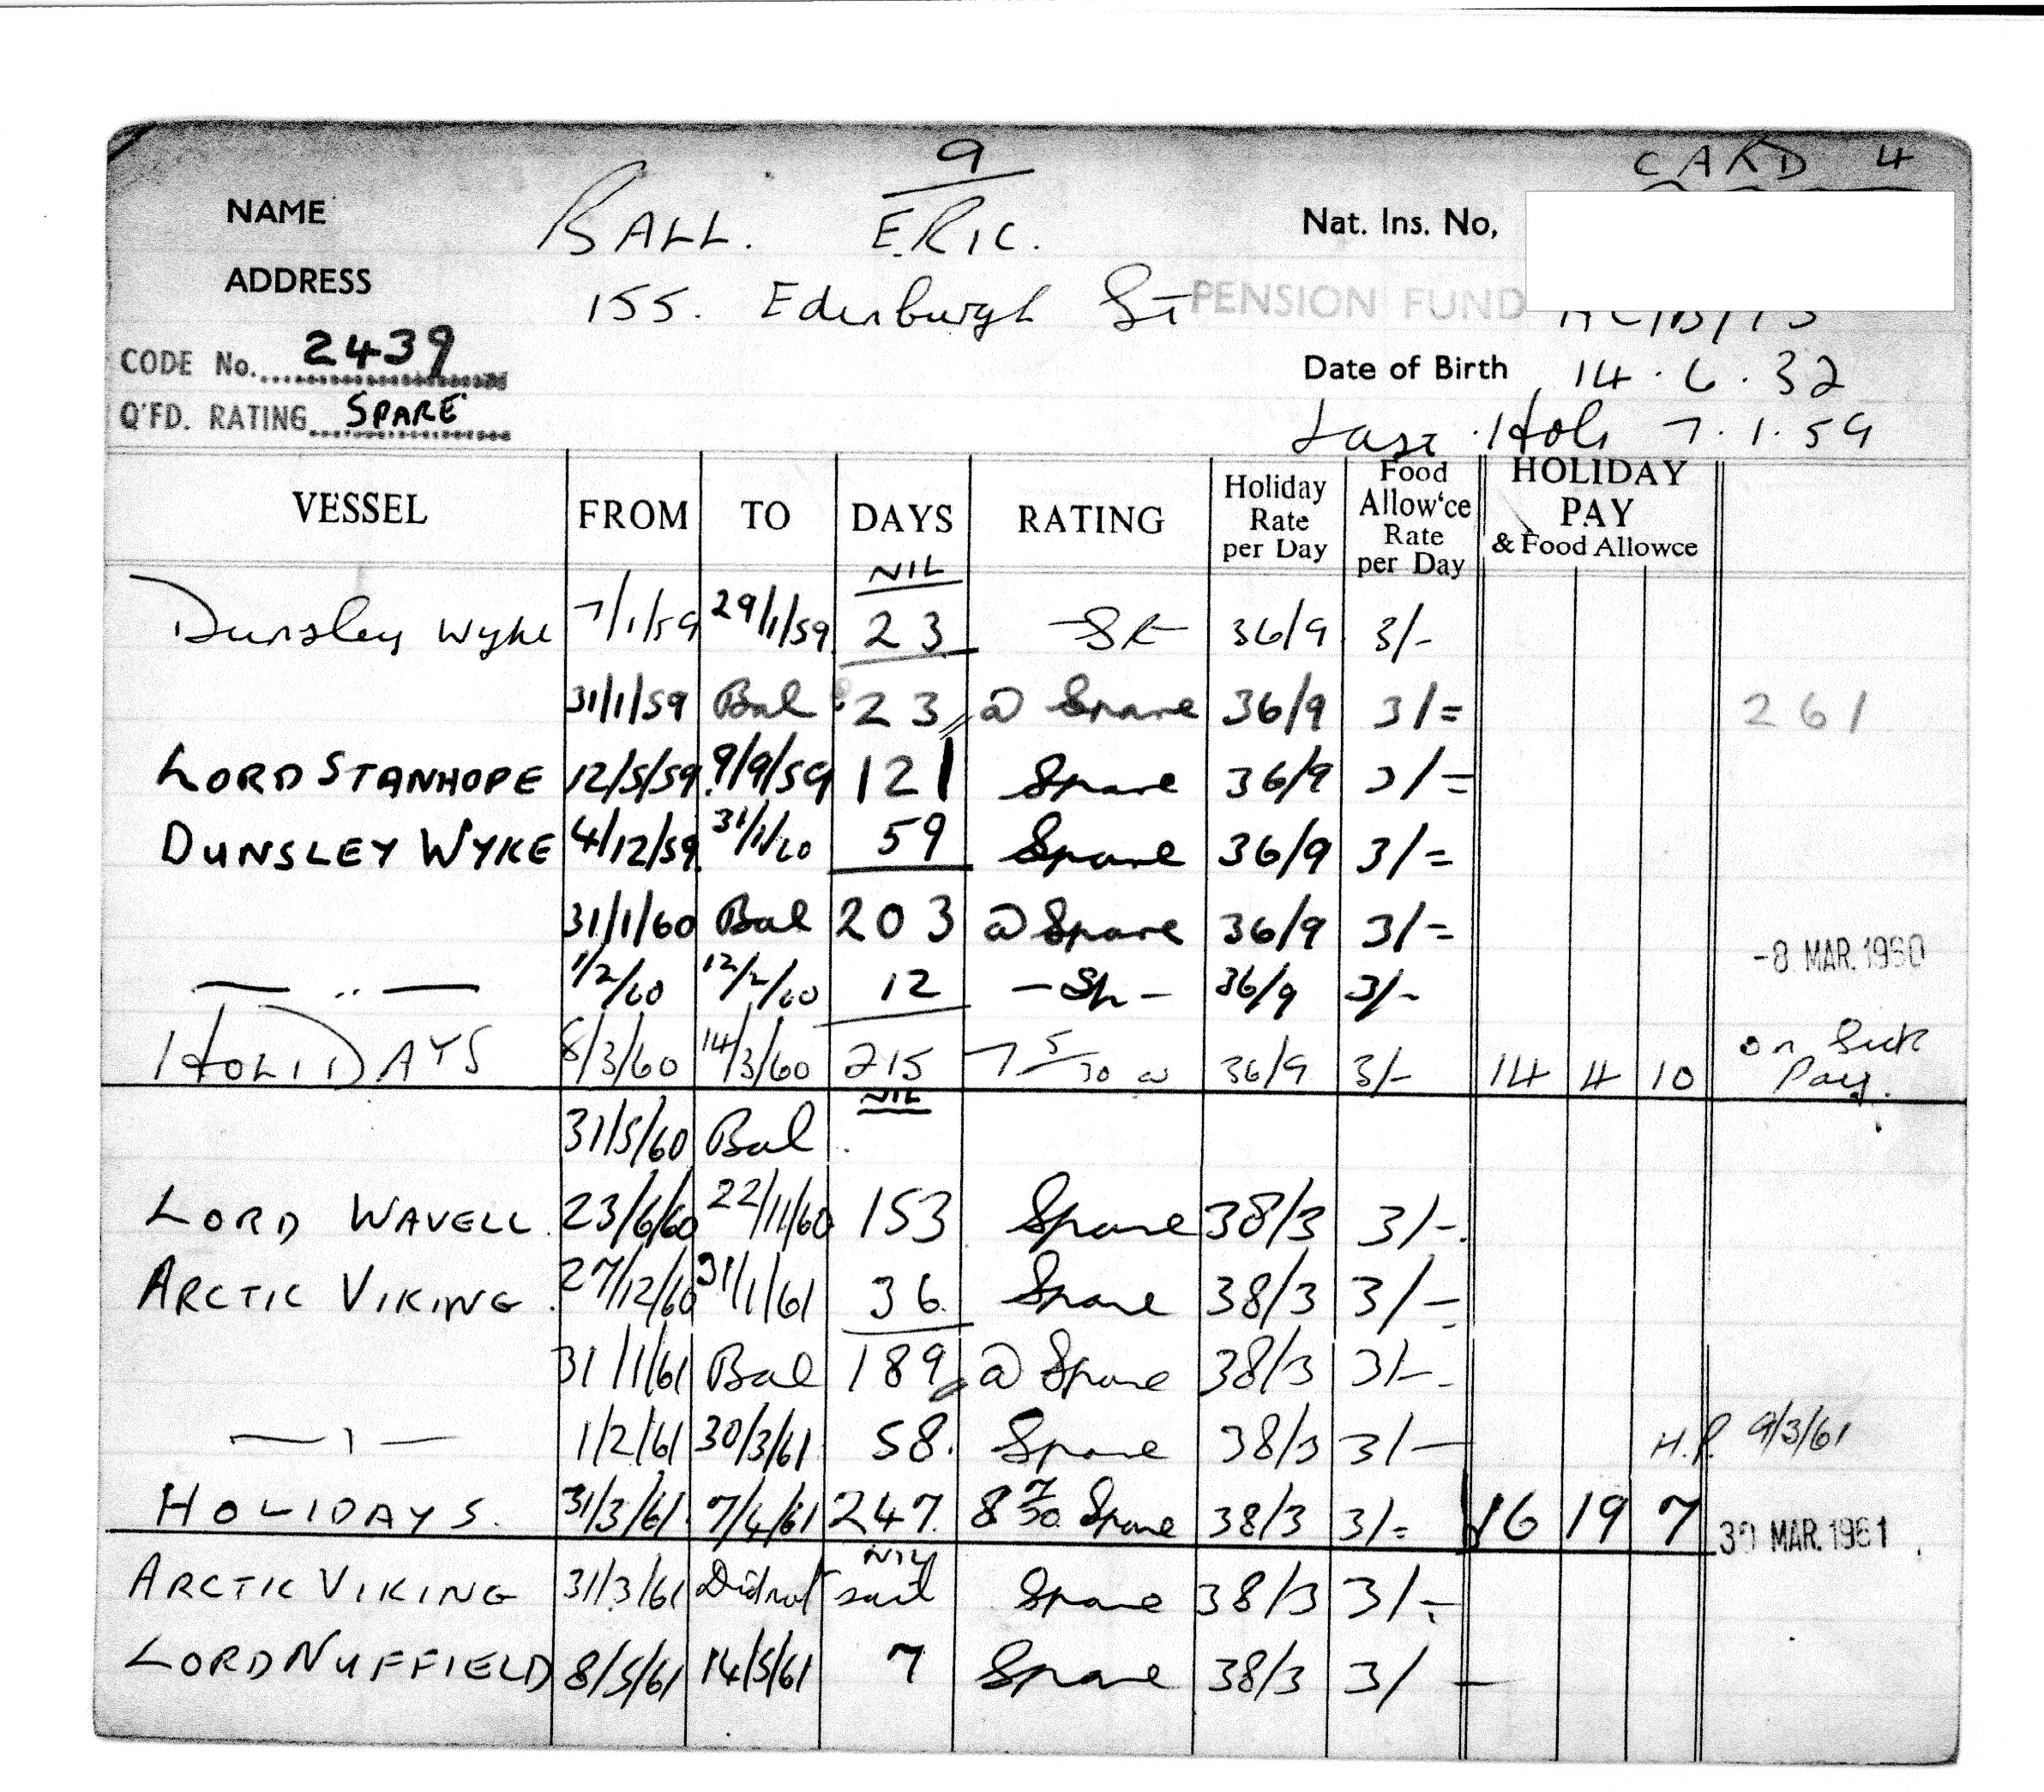 9
CARD 4
NAME BALL. ERIC. Nat. Ins. No,
ADDRESS 155. Edinburgh St PENSION FUND
CODE No. 2439
Date of Birth 14.6.32
Q'FD. RATING SPARE
Last Hols 7.1.59
VESSEL FROM TO DAYS RATING Holiday Rate per Day Food Allow'ce Rate per Day HOLIDAY PAY & Food Allowce
NIL
Dunsley Wyke 7/1/59 29/1/59 23 36/9 3/-
31/1/59 Bal 23 @ Spare 36/9 3/= 261
LORD STANHOPE 12/5/59 9/9/59 121 Spare 36/9 3/=
DUNSLEY WYKE 4/12/59 31/1/60 59 Spare 36/9 3/=
31/1/60 Bal 203 @ Spare 36/9 3/=
-8 MAR. 1960
— .. — 1/2/60 12/2/60 12 - Sp - 36/9 3/-
HOLIDAYS 8/3/60 14/3/60 215 7 5/30 @ 36/9 3/- 14 4 10 on Sick Pay.
NIL
31/5/60 Bal.
LORD WAVELL. 23/6/60 22/11/60 153 Spare 38/3 3/-.
ARCTIC VIKING. 27/12/60 31/1/61 36 Spare 38/3 3/-
31/1/61 Bal 189 @ Spare 38/3 3/-
— " — 1/2/61 30/3/61 58. Spare 38/3 3/- H.P. 9/3/61
HOLIDAYS. 31/3/61 7/4/61 247. 8 7/30 Spare 38/3 3/= 16 19 7 30 MAR. 1961
NIL
ARCTIC VIKING 31/3/61 Did not sail Spare 38/3 3/-
LORD NUFFIELD 8/5/61 14/5/61 7 Spare 38/3 3/-